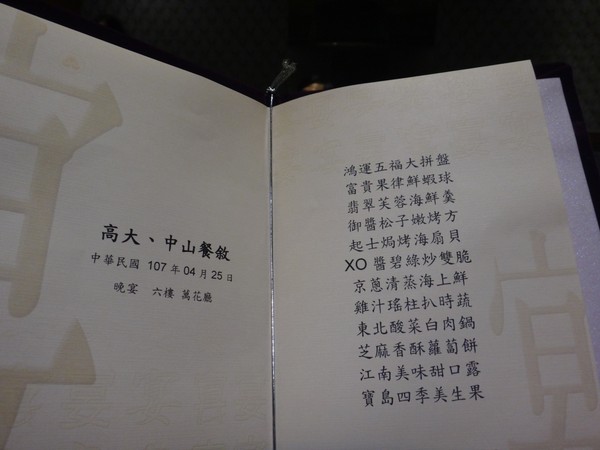 高大、中山餐敘
中華民國 107 年 04 月 25 日
晚宴 六樓 萬花廳
鴻運五福大拼盤
富貴果律鮮蝦球
翡翠芙蓉海鮮羹
御醬松子嫩烤方
起士焗烤海扇貝
XO 醬碧綠炒雙脆
京蔥清蒸海上鮮
雞汁瑤柱扒時蔬
東北酸菜白肉鍋
芝麻香酥蘿蔔餅
江南美味甜口露
寶島四季美生果